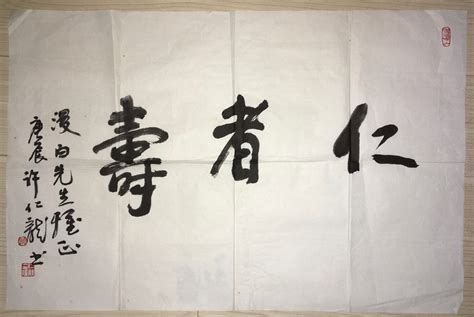 仁者壽
漫白先生雅正
庚辰 许仁龙书